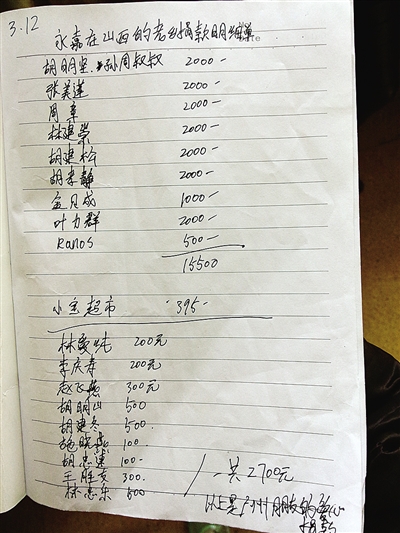 3.12
永嘉在山西的老乡捐款明细单
胡明坚、孙周叔叔 2000-
张美莲 2000-
周章 2000-
林建荣 2000-
胡建松 2000-
胡孝静 2000-
金月成 1000-
叶力群 2000-
Ranos 500-
15500
小宝超市 395-
林 200元
李庆寿 200元
赵飞燕 300元
胡明山 500
胡建冬 500.
施晓 100.
胡忠 100-
王胜 300.
林志乐 500
一共2700元
以上是广州朋友的爱心
捐款